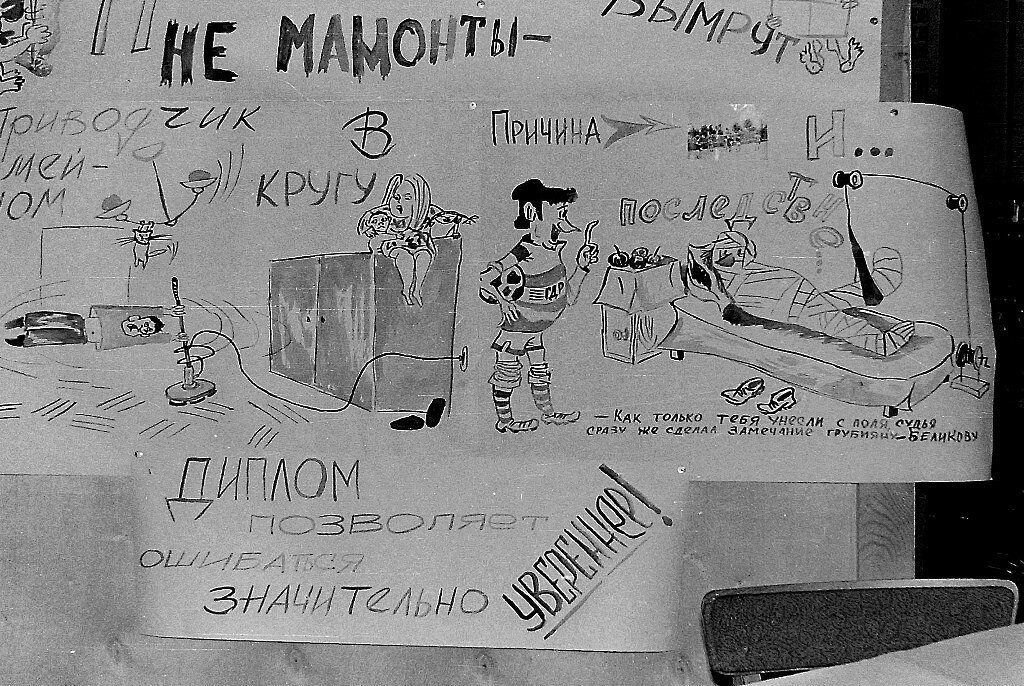 НЕ МАМОНТЫ-
ВЫМРУТ
Приводчик
В
мей-
ном
КРУГУ
Причина
И...
последстви
ГДР
— Как только тебя унесли с поля, судья
сразу же сделал замечание грубияну-Беликову
Диплом
позволяет
ошибаться
значительно
увереннее!